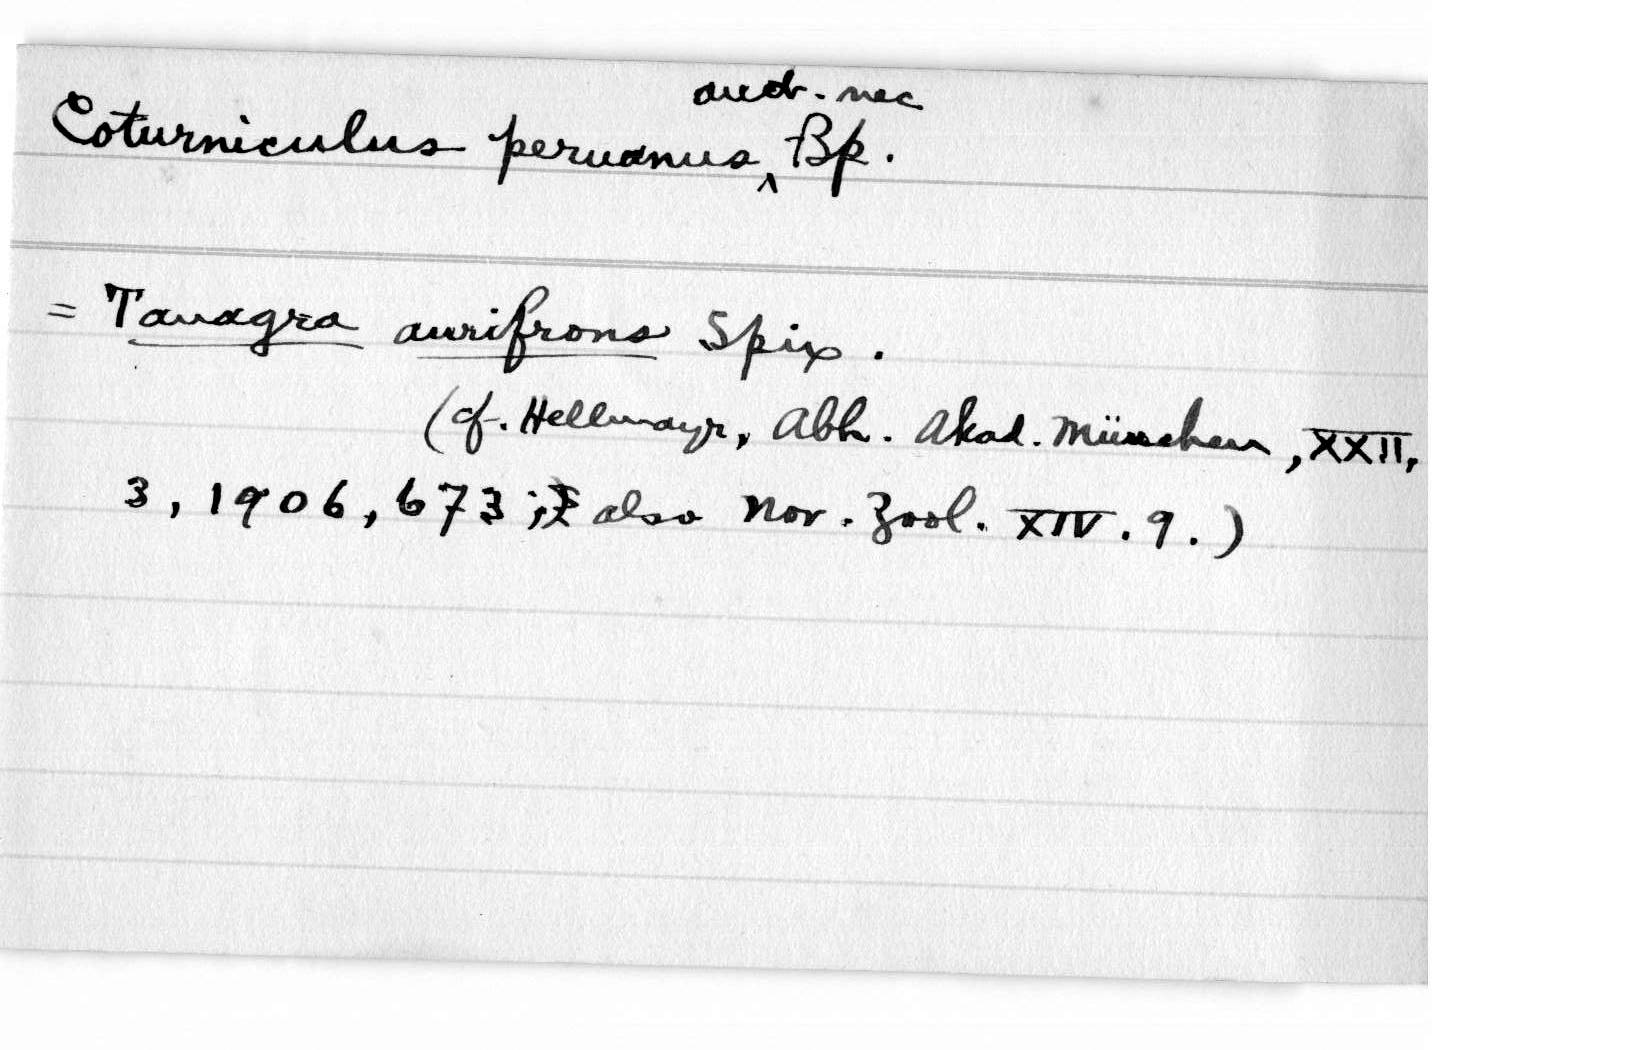 Coturniculus peruanus, auct. nec Bp.
= Tanagra aurifrons Spix.
(cf. Hellmayr, Abh. Akad. München, XXII,
3, 1906, 673; also Nov. Zool. XIV. 9.)